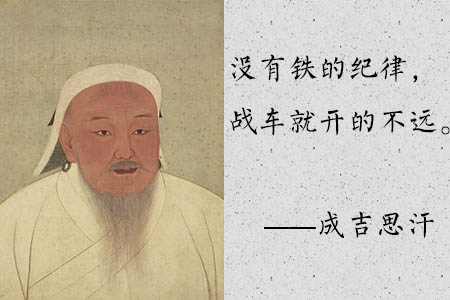 没有铁的纪律，
战车就开的不远。
——成吉思汗